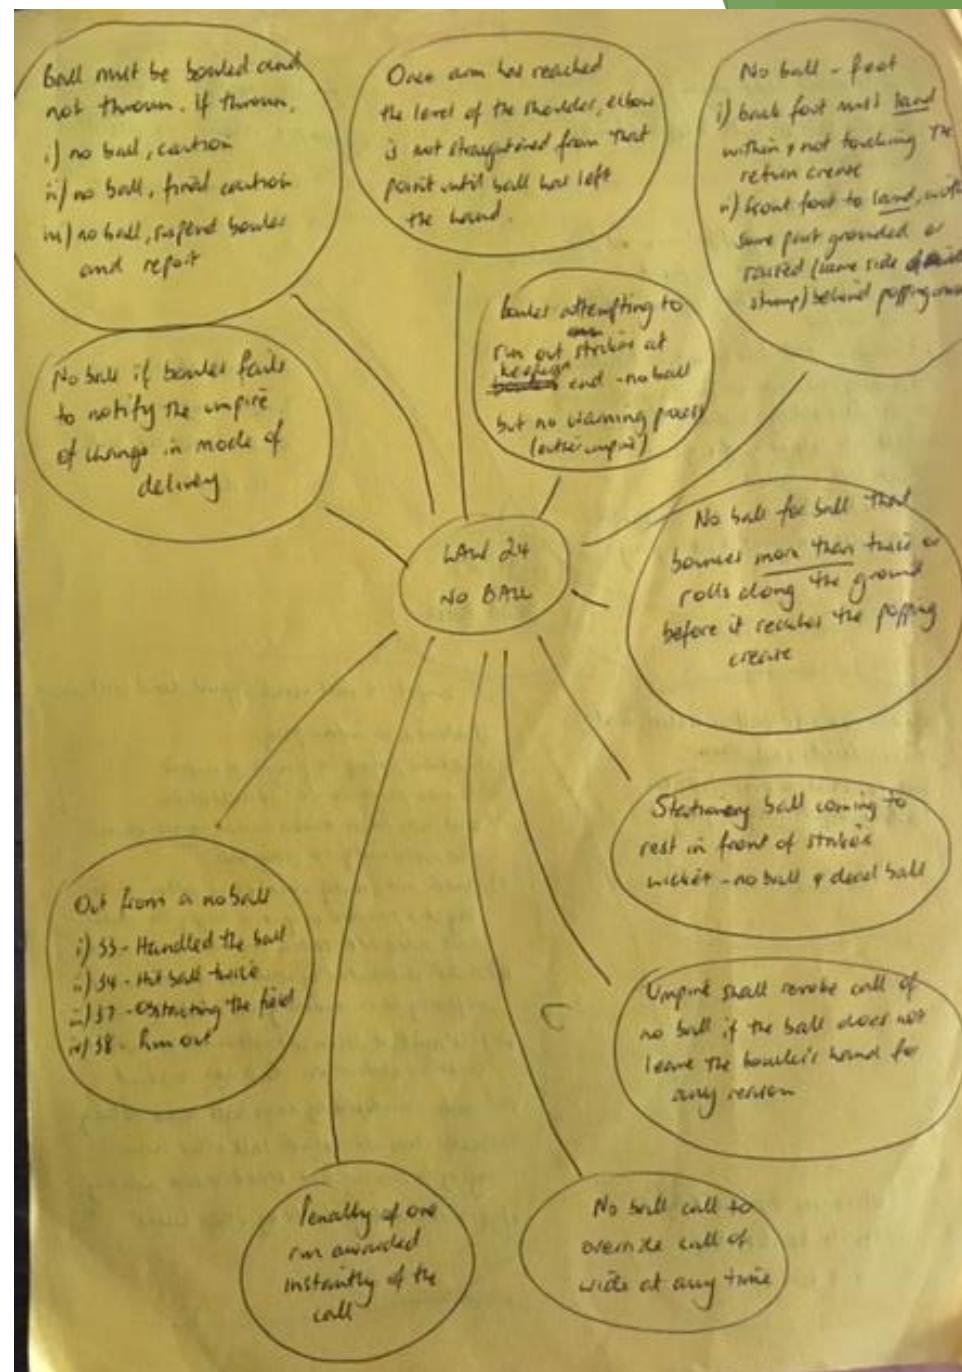 Ball must be bowled and
not thrown. If thrown,
i) no ball, caution
ii) no ball, final caution
iii) no ball, suspend bowler
and report
Once arm has reached
the level of the shoulder, elbow
is not straightened from that
point until ball has left
the hand.
No ball - feet
i) back foot must land
within & not touching the
return crease
ii) front foot to land, with
some part grounded or
raised (same side
stump) behind popping crease
Bowler attempting to
run out striker at
keepers end - no ball
but no warning process
(either umpire)
No ball if bowler fails
to notify the umpire
of change in mode of
delivery
LAW 24
NO BALL
No ball for ball that
bounces more than twice or
rolls along the ground
before it reaches the popping
crease
Stationery ball coming to
rest in front of strikers
wicket - no ball & dead ball
Out from a no ball
i) 33 - Handled the ball
ii) 34 - Hit ball twice
iii) 37 - Obstructing the field
iv) 38 - Run out
Umpire shall revoke call of
no ball if the ball does not
leave the bowler's hand for
any reason
Penalty of one
run awarded
instantly of the
call
No ball call to
override call of
wide at any time